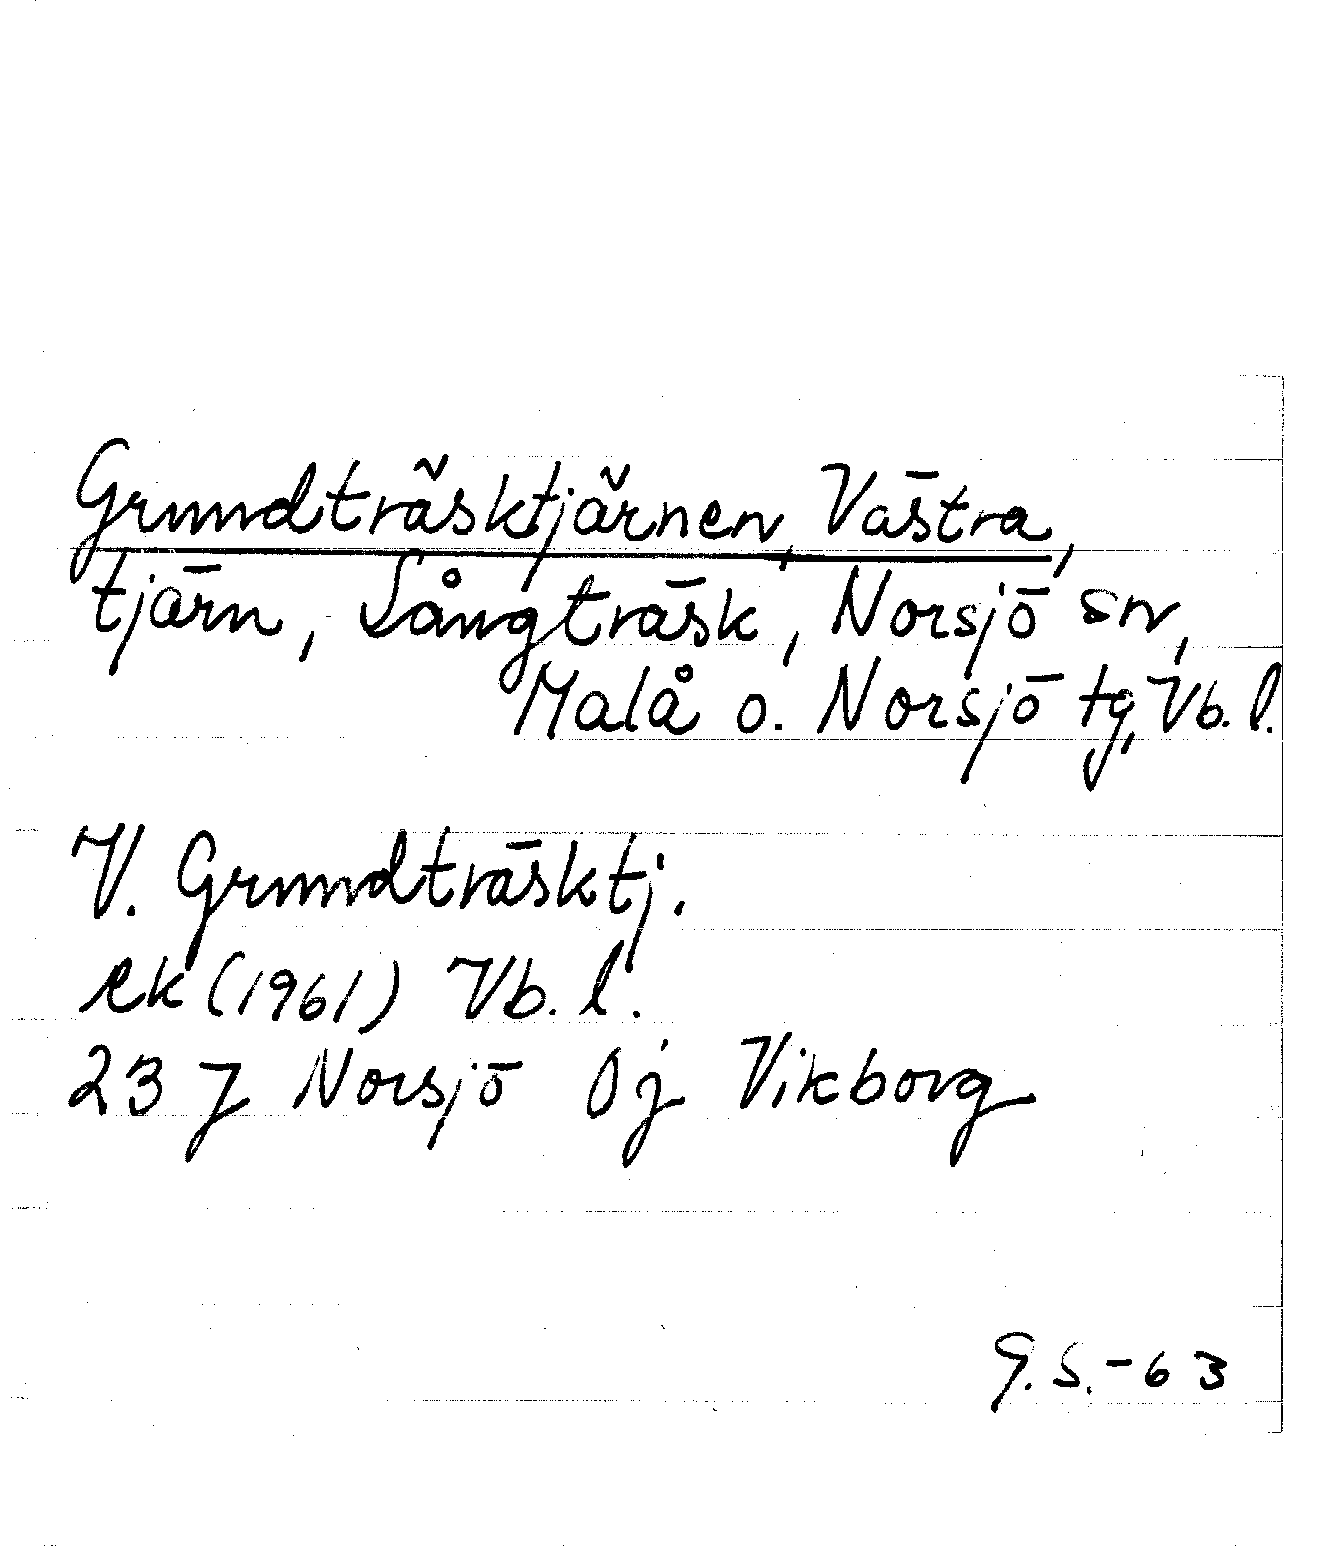 Grundträsktjärnen, Västra,
tjärn, Långträsk, Norsjö sn,
Malå o. Norsjö tg, Vb. l.
V. Grundträsktj.
ek (1961) Vb. l.
23 J Norsjö 0j Vikborg
G.S.-63